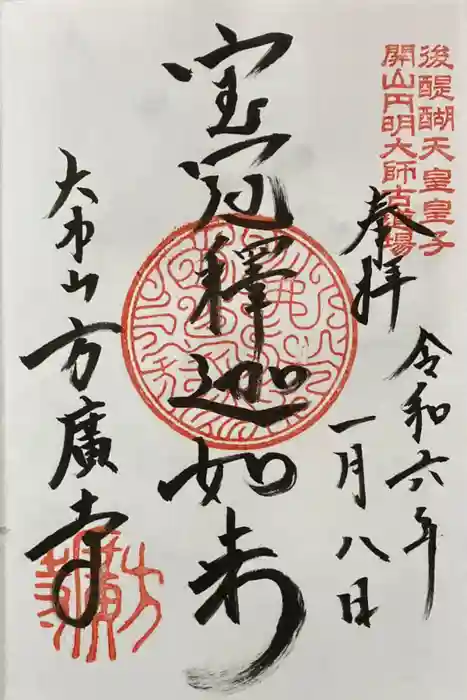 後醍醐天皇皇子
開山円明大師古道場
奉拝
令和六年
一月八日
宝冠釋迦如来
大本山方廣寺